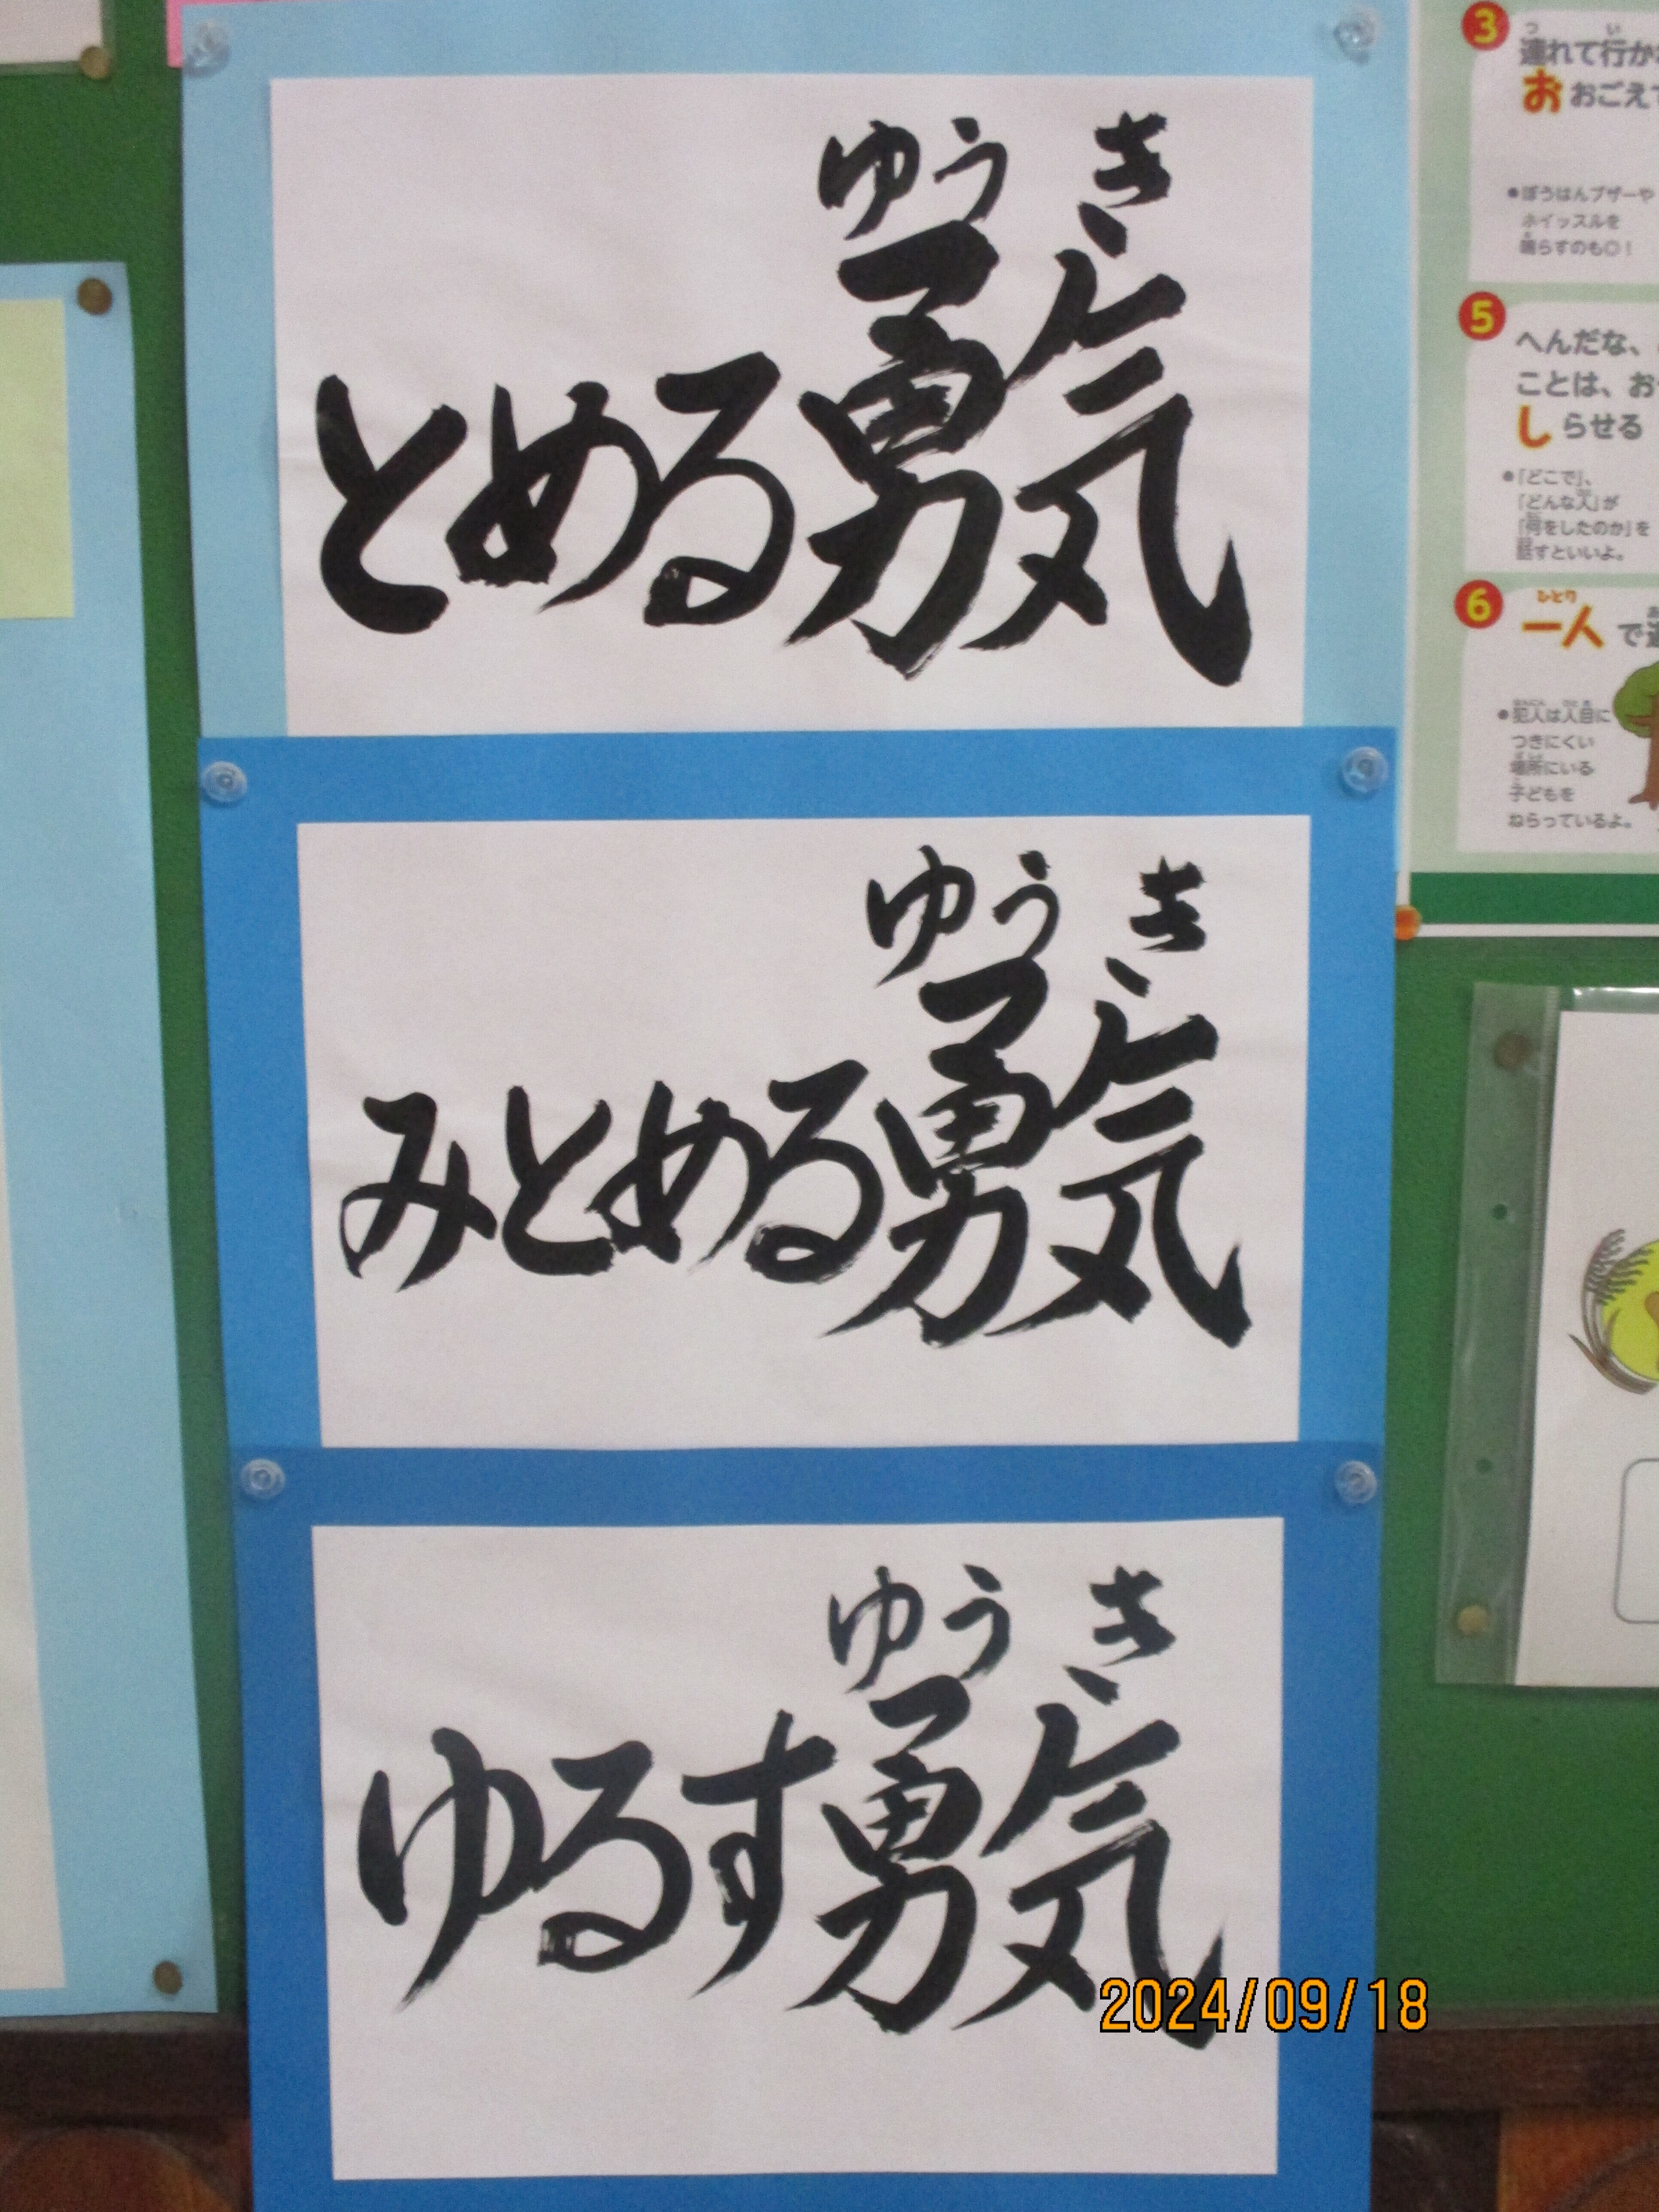 ゆうき
とめる勇気
ゆうき
みとめる勇気
ゆうき
ゆるす勇気
3
つ い
連れて行か
お おごえで
●ぼうはんブザーや
ホイッスルを
鳴らすのも○!
5
へんだな、
ことは、お
し らせる
●「どこで」、
「どんな人」が
「何をしたのか」を
話すといいよ。
6
ひとり
一人で
●犯人は人目に
つきにくい
場所にいる
子どもを
ねらっているよ。
2024/09/18